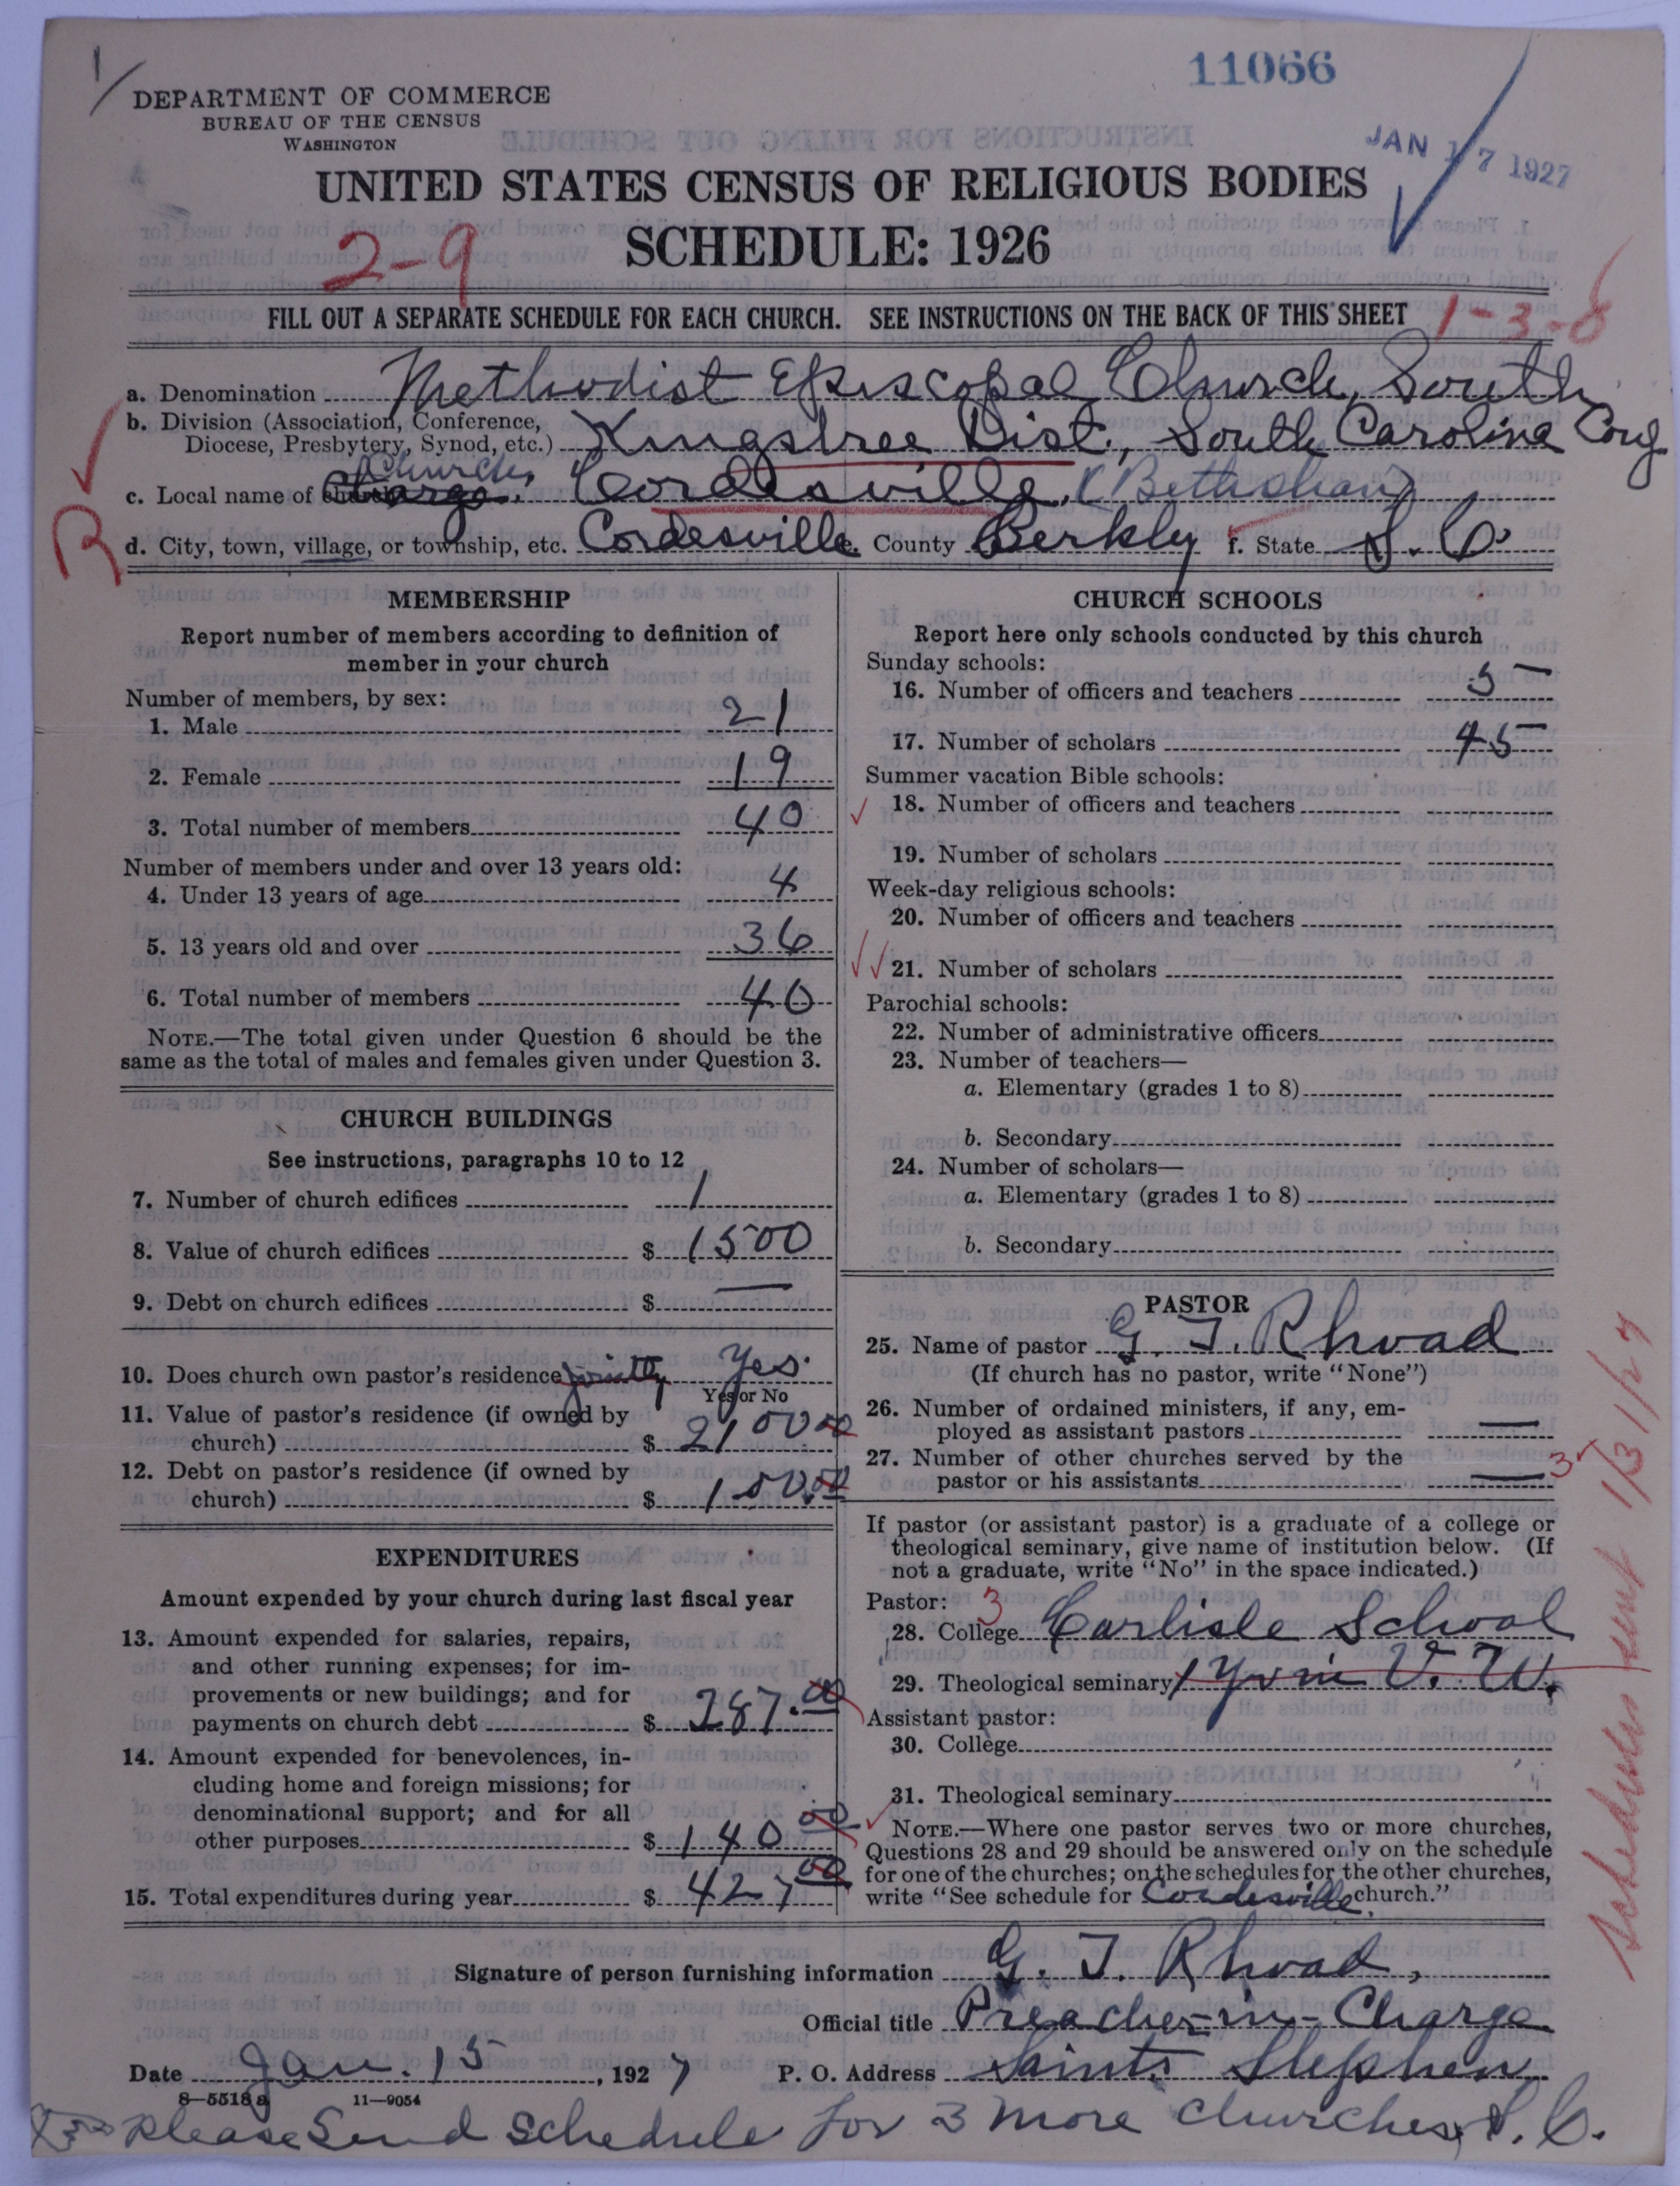 1/
11066
DEPARTMENT OF COMMERCE
BUREAU OF THE CENSUS
WASHINGTON
JAN 17 1927
UNITED STATES CENSUS OF RELIGIOUS BODIES
2-9
SCHEDULE: 1926
FILL OUT A SEPARATE SCHEDULE FOR EACH CHURCH. SEE INSTRUCTIONS ON THE BACK OF THIS SHEET
1-3-8
a. Denomination Methodist Episcopal Church, South
b. Division (Association, Conference,
Diocese, Presbytery, Synod, etc.) Kingstree Dist., South Carolina
Church
c. Local name of Cordesville. (Bethshan)
d. City, town, village, or township, etc. Cordesville e. County Berkly f. State S. C.
R
MEMBERSHIP
Report number of members according to definition of
member in your church
Number of members, by sex:
1. Male 21
2. Female 19
3. Total number of members 40
Number of members under and over 13 years old:
4. Under 13 years of age 4
5. 13 years old and over 36
6. Total number of members 40
NOTE.—The total given under Question 6 should be the
same as the total of males and females given under Question 3.
CHURCH BUILDINGS
See instructions, paragraphs 10 to 12
7. Number of church edifices 1
8. Value of church edifices $ 1500
9. Debt on church edifices $ —
10. Does church own pastor's residence jointly Yes.
Yes or No
11. Value of pastor's residence (if owned by
church) $ 2100 00
12. Debt on pastor's residence (if owned by
church) $ 100.00
EXPENDITURES
Amount expended by your church during last fiscal year
13. Amount expended for salaries, repairs,
and other running expenses; for im-
provements or new buildings; and for
payments on church debt $ 287.00
14. Amount expended for benevolences, in-
cluding home and foreign missions; for
denominational support; and for all
other purposes $ 140 00
15. Total expenditures during year $ 427 00
CHURCH SCHOOLS
Report here only schools conducted by this church
Sunday schools:
16. Number of officers and teachers 5
17. Number of scholars 45
Summer vacation Bible schools:
18. Number of officers and teachers
19. Number of scholars
Week-day religious schools:
20. Number of officers and teachers
21. Number of scholars
Parochial schools:
22. Number of administrative officers
23. Number of teachers—
a. Elementary (grades 1 to 8)
b. Secondary
24. Number of scholars—
a. Elementary (grades 1 to 8)
b. Secondary
PASTOR
25. Name of pastor G. T. Rhoad
(If church has no pastor, write "None")
26. Number of ordained ministers, if any, em-
ployed as assistant pastors —
27. Number of other churches served by the
pastor or his assistants — 3
If pastor (or assistant pastor) is a graduate of a college or
theological seminary, give name of institution below. (If
not a graduate, write "No" in the space indicated.)
Pastor: 3
28. College Carlisle School
29. Theological seminary 1 yr in V. U.
Assistant pastor:
30. College
31. Theological seminary
NOTE.—Where one pastor serves two or more churches,
Questions 28 and 29 should be answered only on the schedule
for one of the churches; on the schedules for the other churches,
write "See schedule for Cordesville church."
Schedules sent 1/31/27
Signature of person furnishing information G. T. Rhoad,
Official title Preacher-in-Charge
Date Jan. 15, 1927 P. O. Address Saint Stephen
8—5518a 11—9054
Please Send schedule for 3 more churches, S. C.